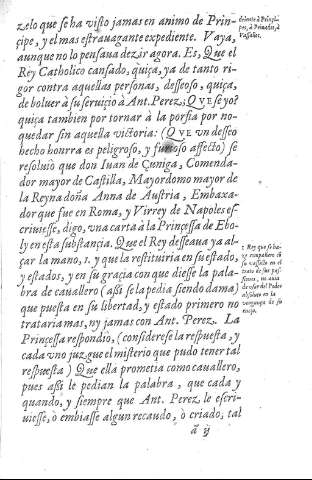 zelo que se ha visto jamas en animo de Prin-
çipe, y el mas estrauagante expediente. Vaya,
aunque no lo pensaua dezir agora. Es, Que el
Rey Catholico cansado, quiça, ya de tanto ri-
gor contra aquellas personas, desseoso, quiça,
de boluer à su seruiçio à Ant. Perez; QVE se yo?
quiça tambien por tornar à la porfia por no-
quedar sin aquella victoria: (QVE vn desseo
hecho honrra es peligroso, y furioso affecto) se
resoluio que don Iuan de Çuniga, Comenda-
dor mayor de Castilla, Mayordomo mayor de
la Reyna doña Anna de Austria, Embaxa-
dor que fue en Roma, y Virrey de Napoles es-
criuiesse, digo, vna carta à la Prinçessa de Ebo-
ly en esta substancia. Que el Rey desseaua ya al-
çar la mano, 1. y que la restituiria en su estado,
y estados, y en su graçia con que diesse la pala-
bra de cauallero (assi se la pedia siendo dama)
que puesta en su libertad, y estado primero no
trataria mas, ny jamas con Ant. Perez. La
Prinçessa respondio, (considerese la respuesta, y
cada vno juzgue el misterio que pudo tener tal
respuesta) Que ella prometia como cauallero,
pues assi le pedian la palabra, que cada y
quando, y siempre que Ant. Perez le escri-
uiesse, ò embiasse algun recaudo, ò criado, tal
ã ij
à Prinçi-
pes, à Priuados, à
Vassallos.
1 Rey que se ha-
su vassallo en el
trato de sus pas-
siones, en auia
de vsar del Poder
absoluto en la
vengança de su
enojo.